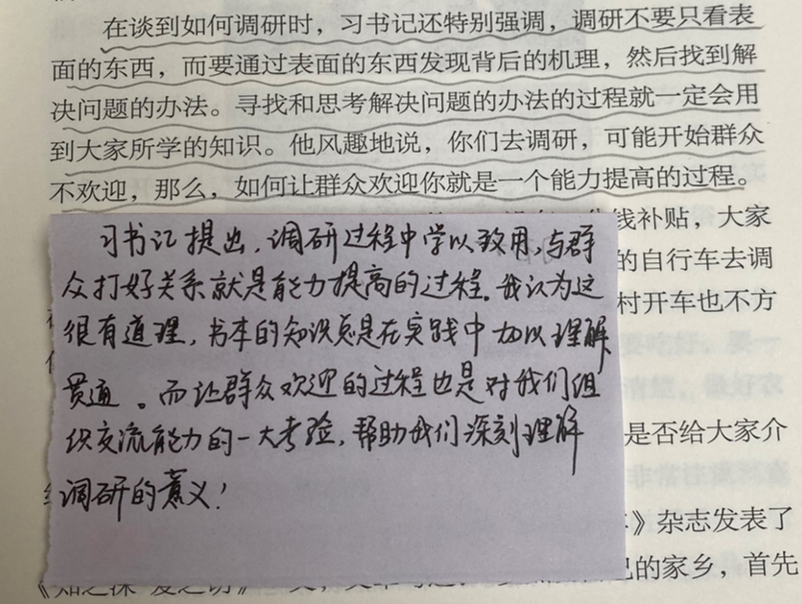 在谈到如何调研时，习书记还特别强调，调研不要只看表
面的东西，而要通过表面的东西发现背后的机理，然后找到解
决问题的办法。寻找和思考解决问题的办法的过程就一定会用
到大家所学的知识。他风趣地说，你们去调研，可能开始群众
不欢迎，那么，如何让群众欢迎你就是一个能力提高的过程。
钱补贴，大家
的自行车去调
村开车也不方
是否给大家介
》杂志发表了
的家乡，首先
习书记提出，调研过程中学以致用，与群
众打好关系就是能力提高的过程。我认为这
很有道理，书本的知识总是在实践中加以理解
贯通。而让群众欢迎的过程也是对我们组
织交流能力的一大考验，帮助我们深刻理解
调研的意义！